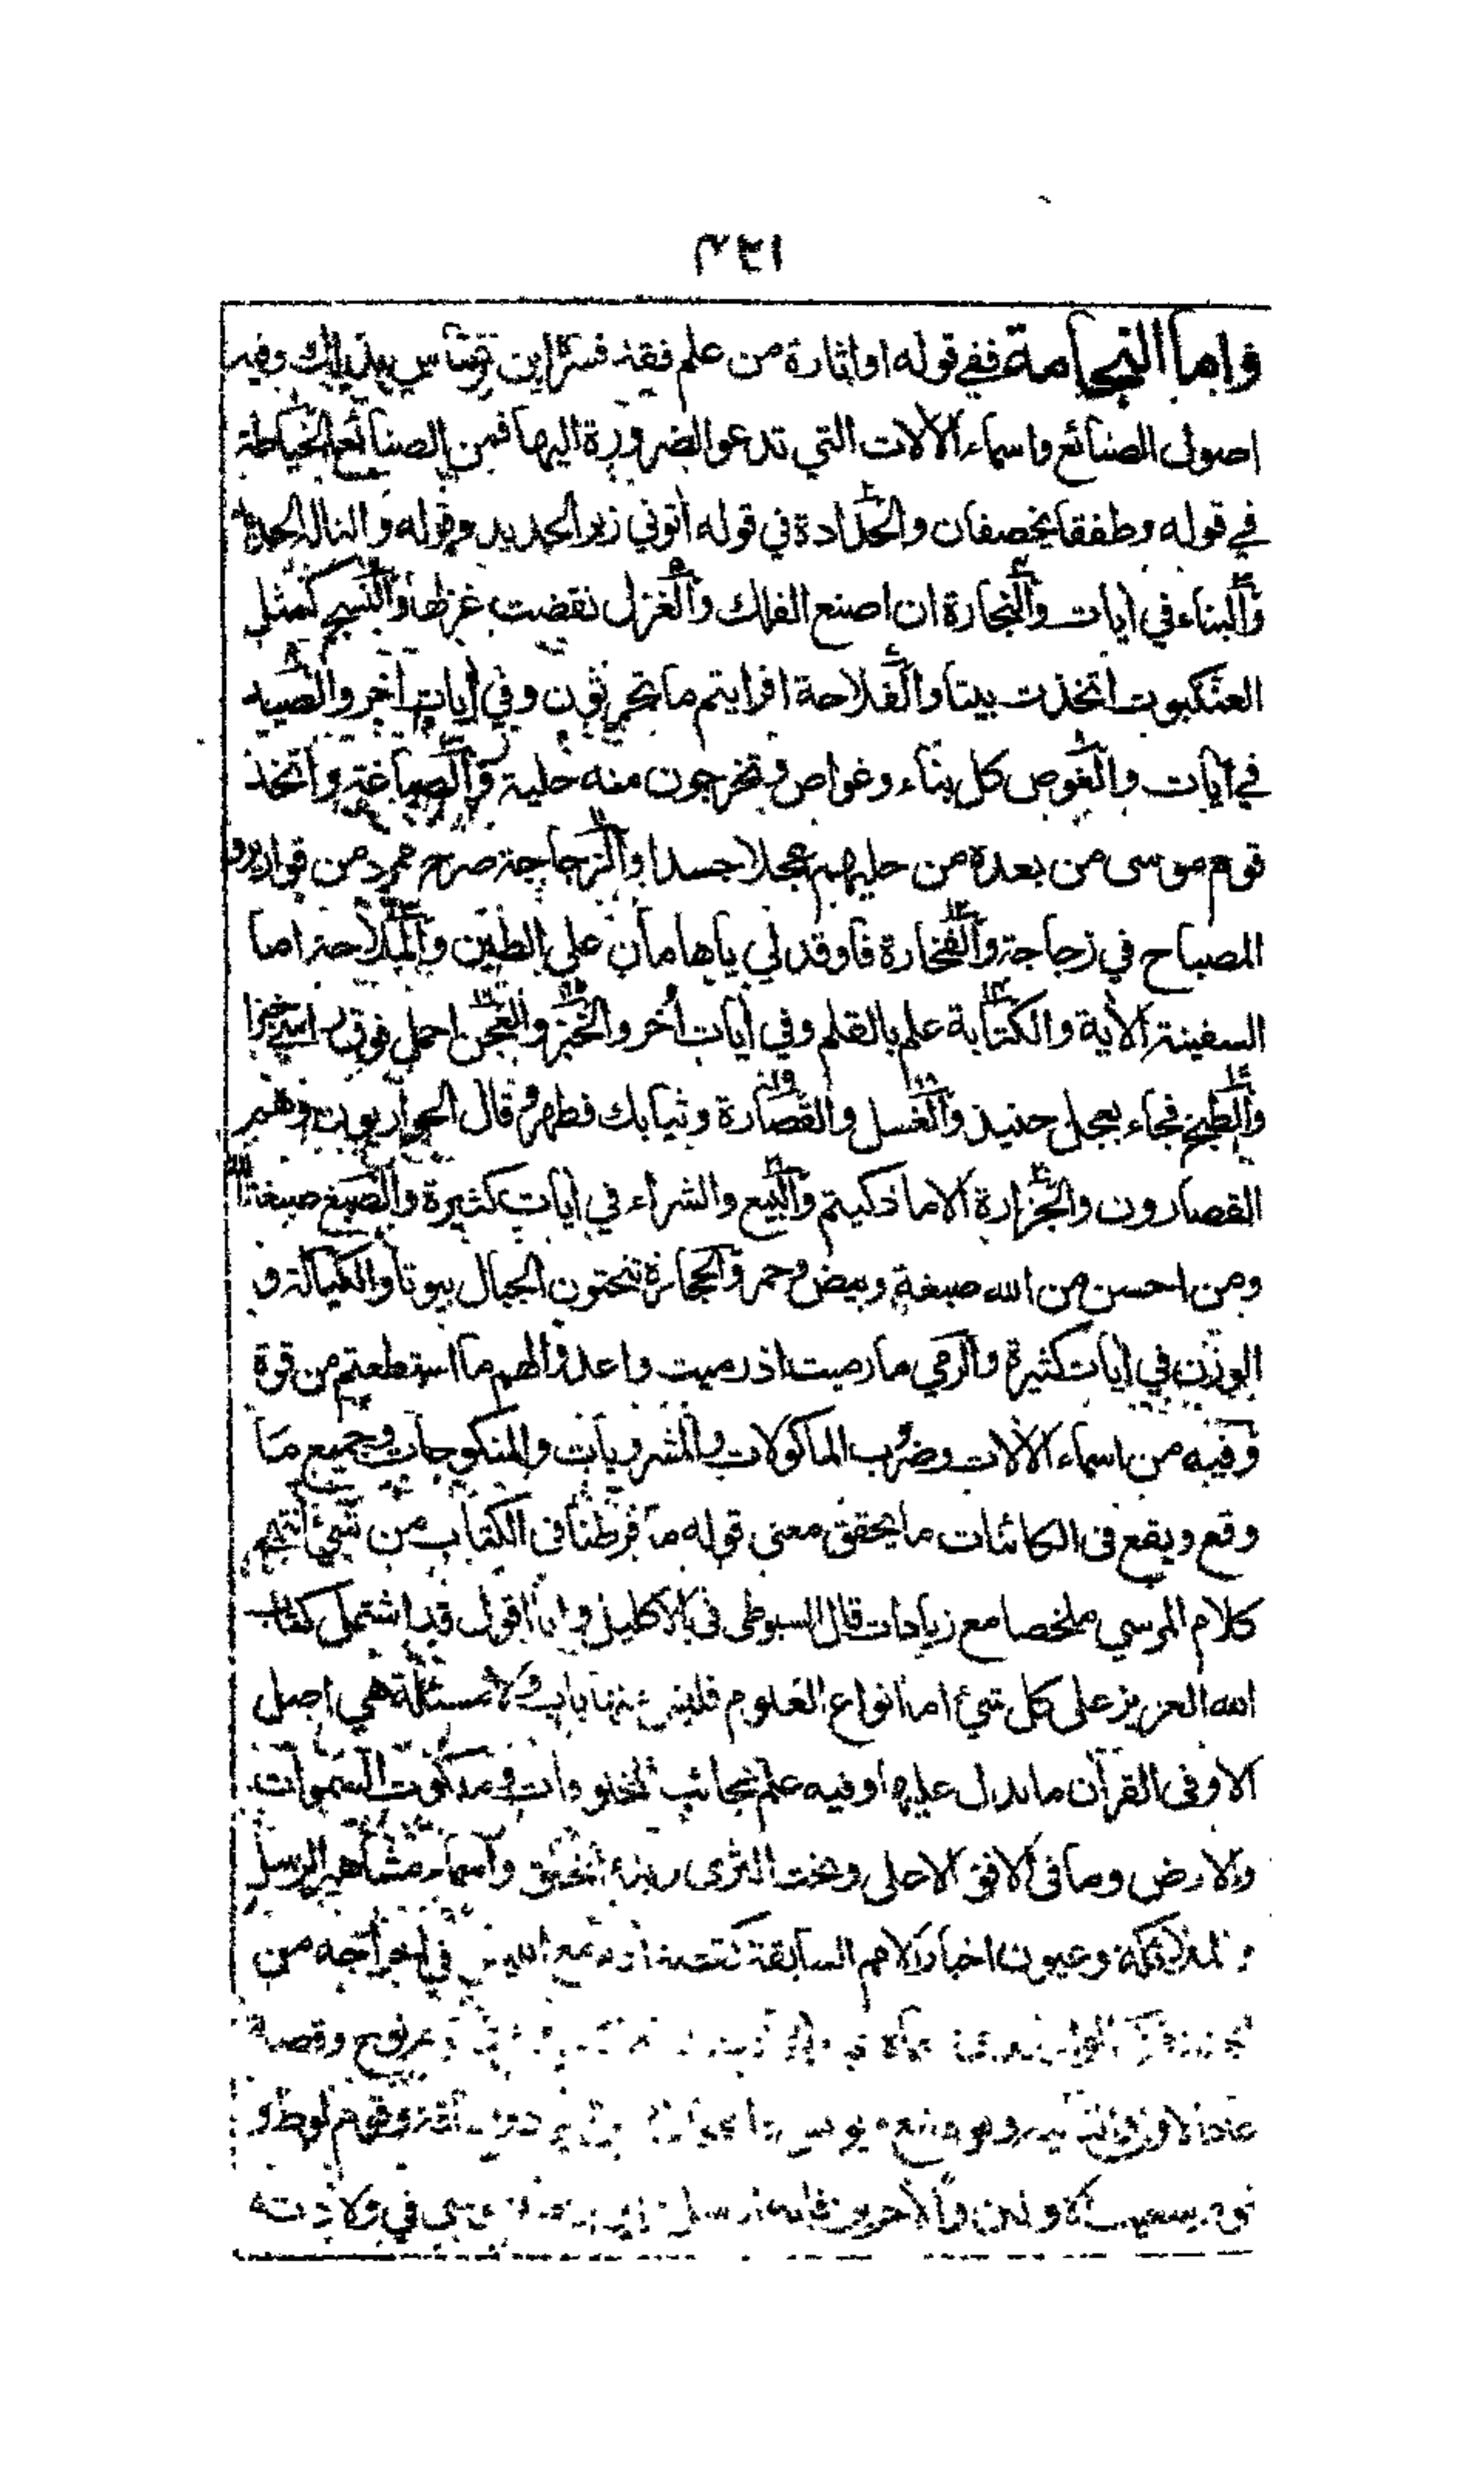 ٤٣١
واما النجامة ففي قوله او اثارة من علم فقد فسر ابن عباس بذلك وفيه
اصول الصنائع واسماء الالات التي تدعو الضرورة اليها فمن الصنائع الخياطة
في قوله وطفقا يخصفان والحدادة في قوله اتوني زبر الحديد وقوله والنا له الحديد
والبناء في ايات والنجارة ان اصنع الفلك والغزل نقضت غزلها والنسج كمثل
العنكبوت اتخذت بيتا والفلاحة افرايتم ما تحرثون وفي ايات اخر والصيد
في ايات والغوص كل بناء وغواص وتخرجون منه حلية والصياغة واتخذ
قوم موسى من بعده من حليهم عجلا جسدا والزجاجة صرح ممرد من قوارير و
المصباح في زجاجة والفخارة فاوقد لي ياهامان على الطين والملاحة اما
السفينة الاية والكتابة علم بالقلم وفي ايات اخر والخبز والعجن احمل فوق راسي خبزا
والطبخ فجاء بعجل حنيذ والغسل والقصارة وثيابك فطهر وقال الحواريون وهم
القصارون والجزارة الا ما ذكيتم والبيع والشراء في ايات كثيرة والصبغ صبغة الله
ومن احسن من الله صبغة وبيض وحمر والحجارة تنحتون الجبال بيوتا والكيالة و
الوزن في ايات كثيرة والرمي ما رميت اذ رميت واعدوا لهم ما استطعتم من قوة
وفيه من اسماء الالات وضرب الماكولات والمشروبات والمنكوحات وجميع ما
وقع ويقع في الكائنات ما يحقق معنى قوله ما فرطنا في الكتاب من شيء انتهى
كلام المرسي ملخصا مع زيادات قال السيوطي في الاكليل وانا اقول قد اشتمل كتاب
الله العزيز على كل شيء اما انواع العلوم فليس منها باب ولا مسئلة هي اصل
الا وفي القرآن ما يدل عليها وفيه علم عجائب المخلوقات وملكوت السموات
والارض وما في الافق الاعلى وتحت الثرى وبدء الخلق واسماء مشاهير الرسل
والملائكة وعيون اخبار الامم السابقة كقصة ادم مع ابليس في اخراجه من
الجنة نوح وقصة
عاد الاولى وقوم لوط و
الاولين والاخرين في ولادته